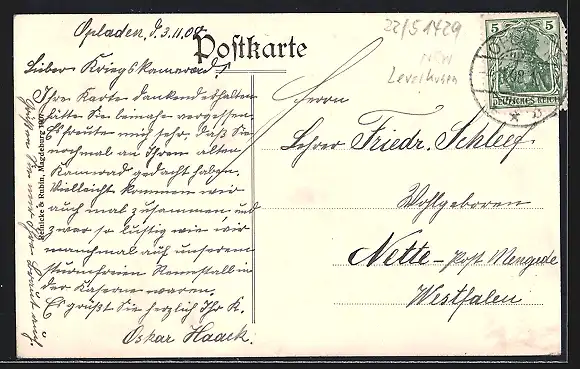 Opladen, d. 3.11.08.
Postkarte
22/51429
NRW
Leverkusen
5 5
DEUTSCHES REICH
Lieber Kriegskamerad!
Ihre Karte dankend erhalten
hätte Sie beinahe vergessen.
Es freute mich sehr, daß Sie
nochmal an Ihren alten
Kamrad gedacht haben.
Vielleicht kommen wir
auch mal zusammen und
zwar so lustig wie wir
manchmal auf unserem
Rennstall in
der Kaserne waren.
Es grüßt Sie herzlich Ihr K.
Oskar Haack.
& Rubin, Magdeburg
Herrn
Lehrer Friedr. Schleef
Wohlgeboren
Nette - Post Mengede
Westfalen